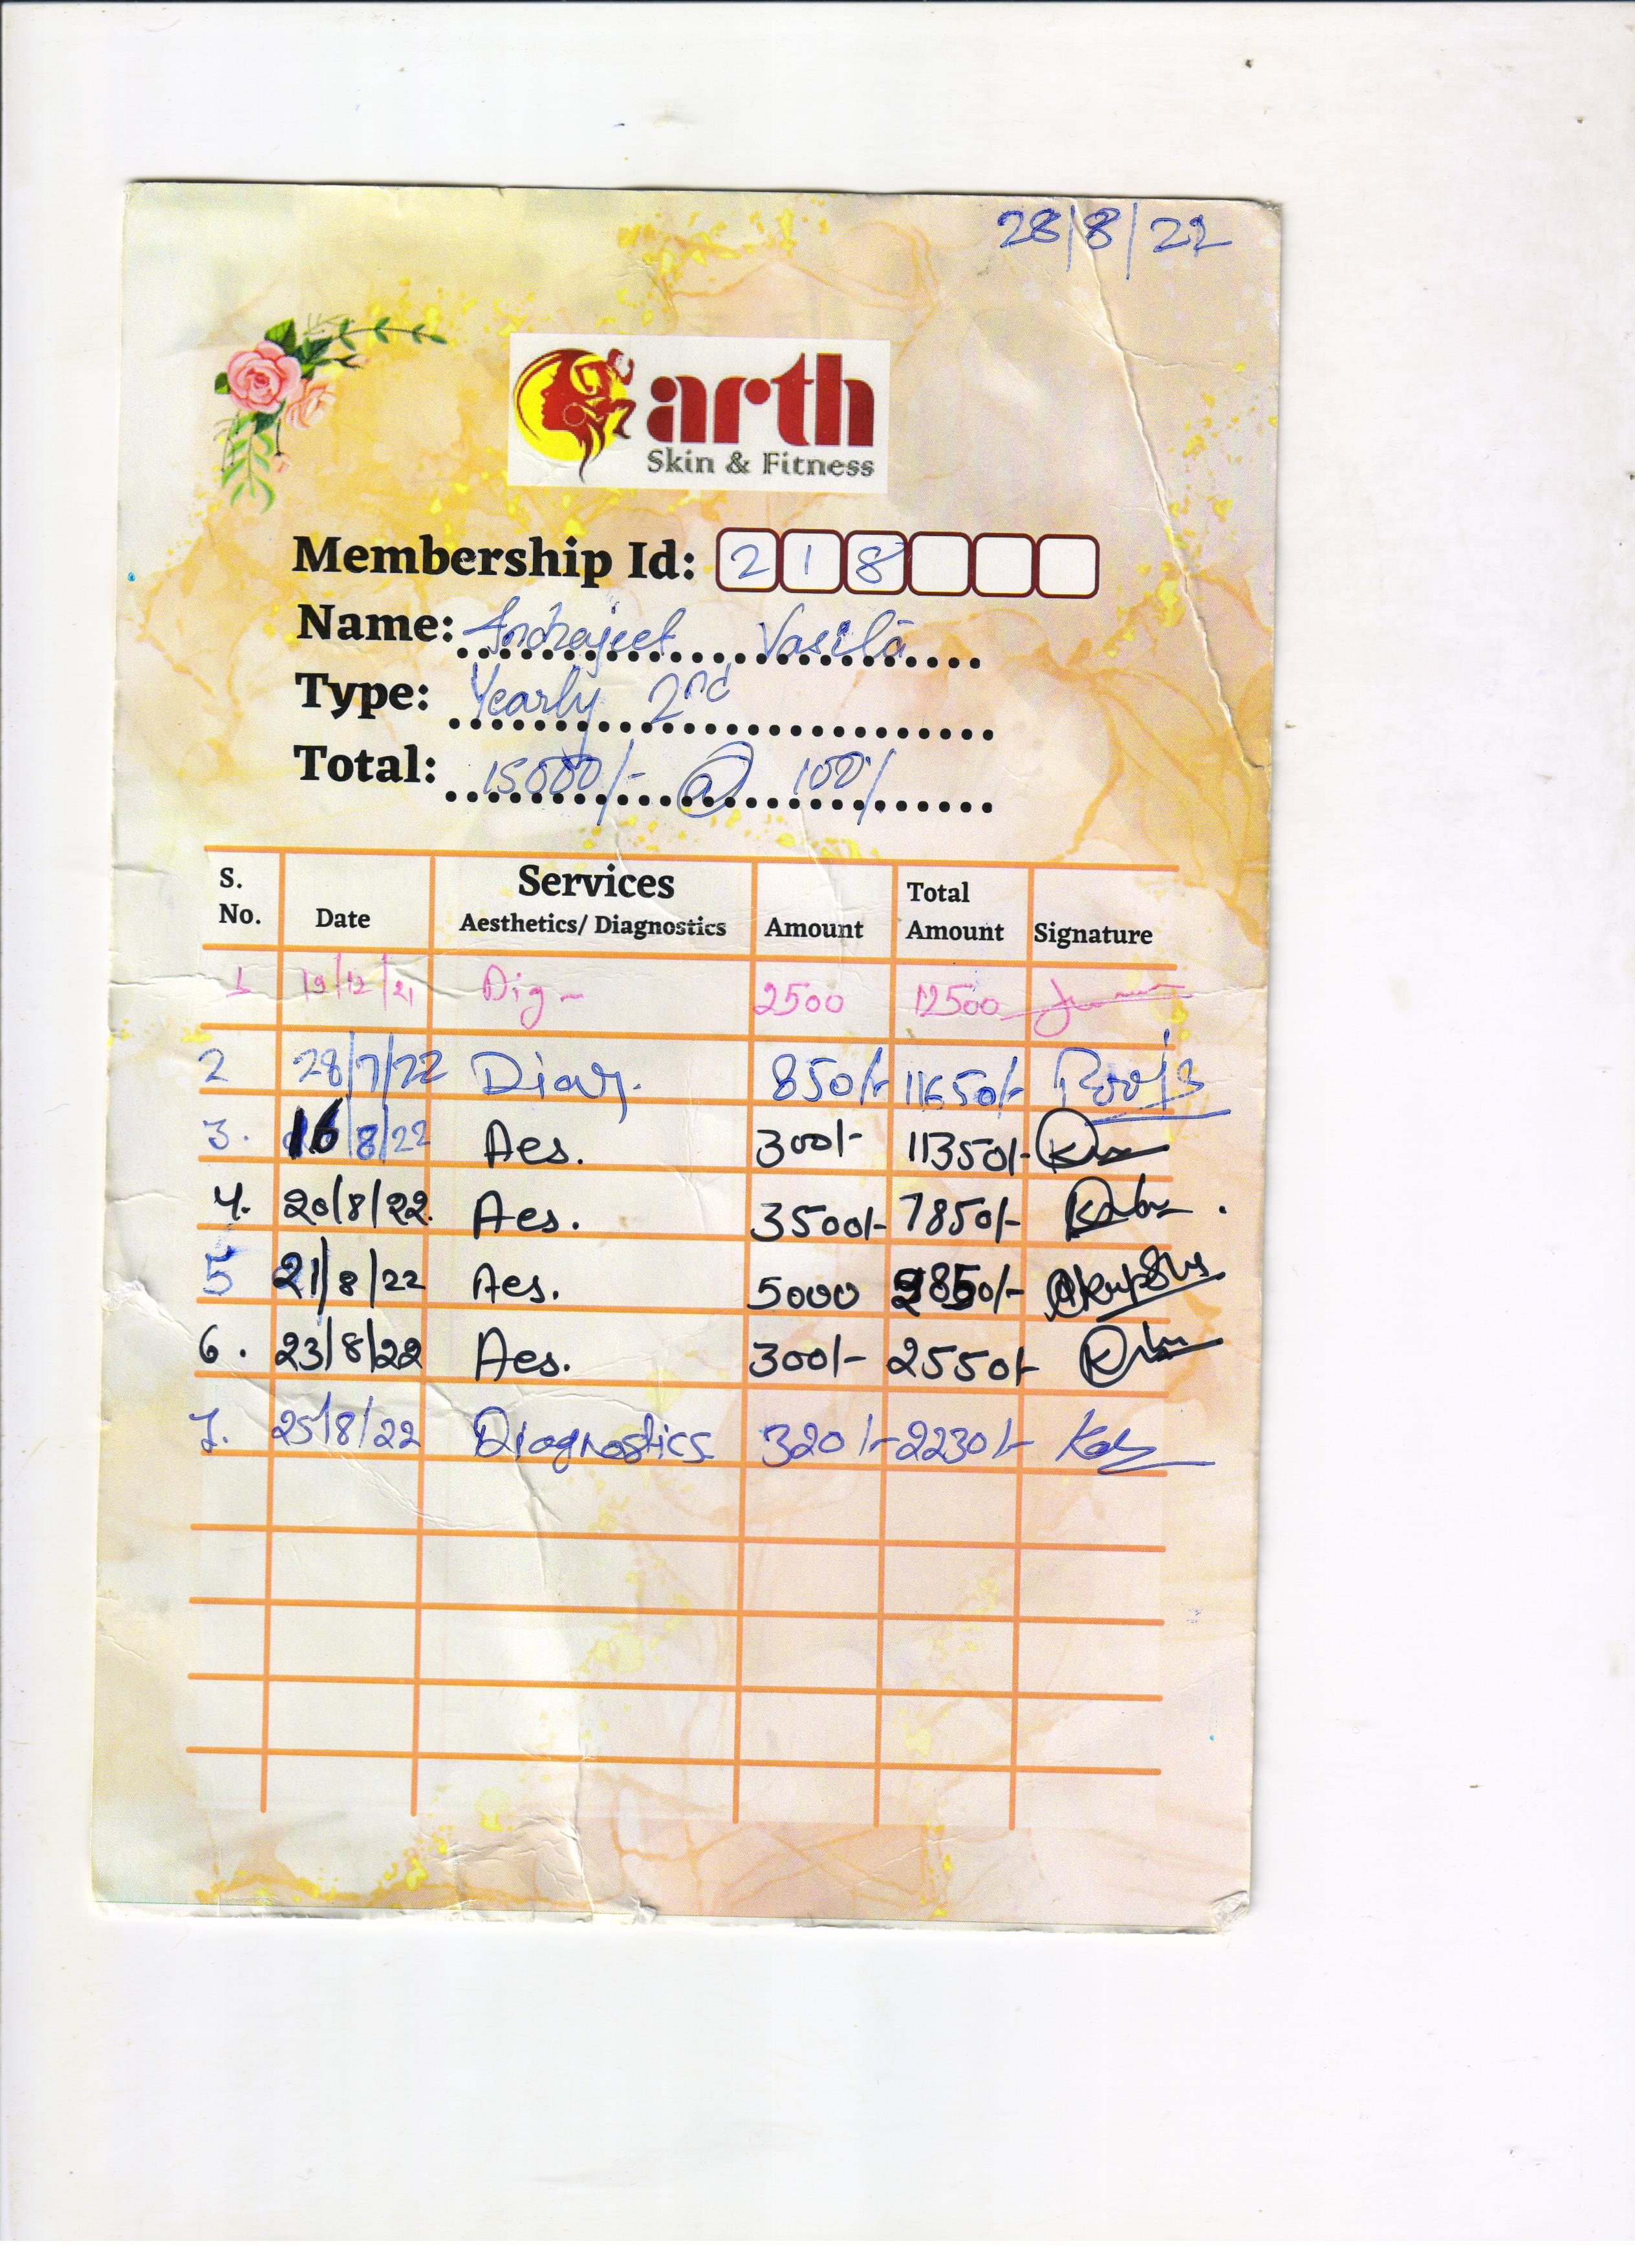 28/8/22
arth
Skin & Fitness
Membership Id: 218
Name: Vasila
Type: Yearly 2nd
Total: 15000/- @ 100/
S. No. Date Services Aesthetics/ Diagnostics Amount Total Amount Signature
1 19/12/21 Dig- 2500 12500
2 28/7/22 850/- 11650/- Pooja
3. 16/8/22 Aes. 300/- 11350/-
4. 20/8/22 Aes. 3500/- 7850/-
5 21/8/22 Aes. 5000 2850/-
6. 23/8/22 Aes. 300/- 2550/-
7. 25/8/22 Diagnostics 320/- 2230/-